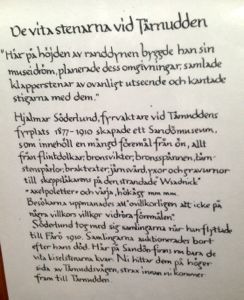 De vita stenarna vid Tärnudden
"Här på höjden av randdynen byggde han sin
museidröm, planerade dess omgivningar, samlade
klapperstenar av ovanligt utseende och kantade
stigarna med dem."
Hjalmar Söderlund, fyrvaktare vid Tärnuddens
fyrplats 1877-1910 skapade ett Sandömuseum,
som innehöll en mängd föremål från ön, allt
från flintdolkar, bronsvikter, bronsspännen,
stenspärlor, brakteater, järnsvärd, yxor och gravurnor
till skeppsläkarens på den strandade "Wsadnick"
"axelpoletter" och värja, hökägg mm mm.
Besökarna uppmanades att "ovillkorligen att icke på
några villkor vidröra föremålen".
Söderlund tog med sig samlingarna när han flyttade
till Fårö 1910. Samlingarna auktionerades bort
efter hans död. Här på Sandön finns nu bara de
vita kiselstenarna kvar. Ni hittar dem på höger
sida av Tärnuddsvägen, strax innan ni kommer
fram till Tärnudden.